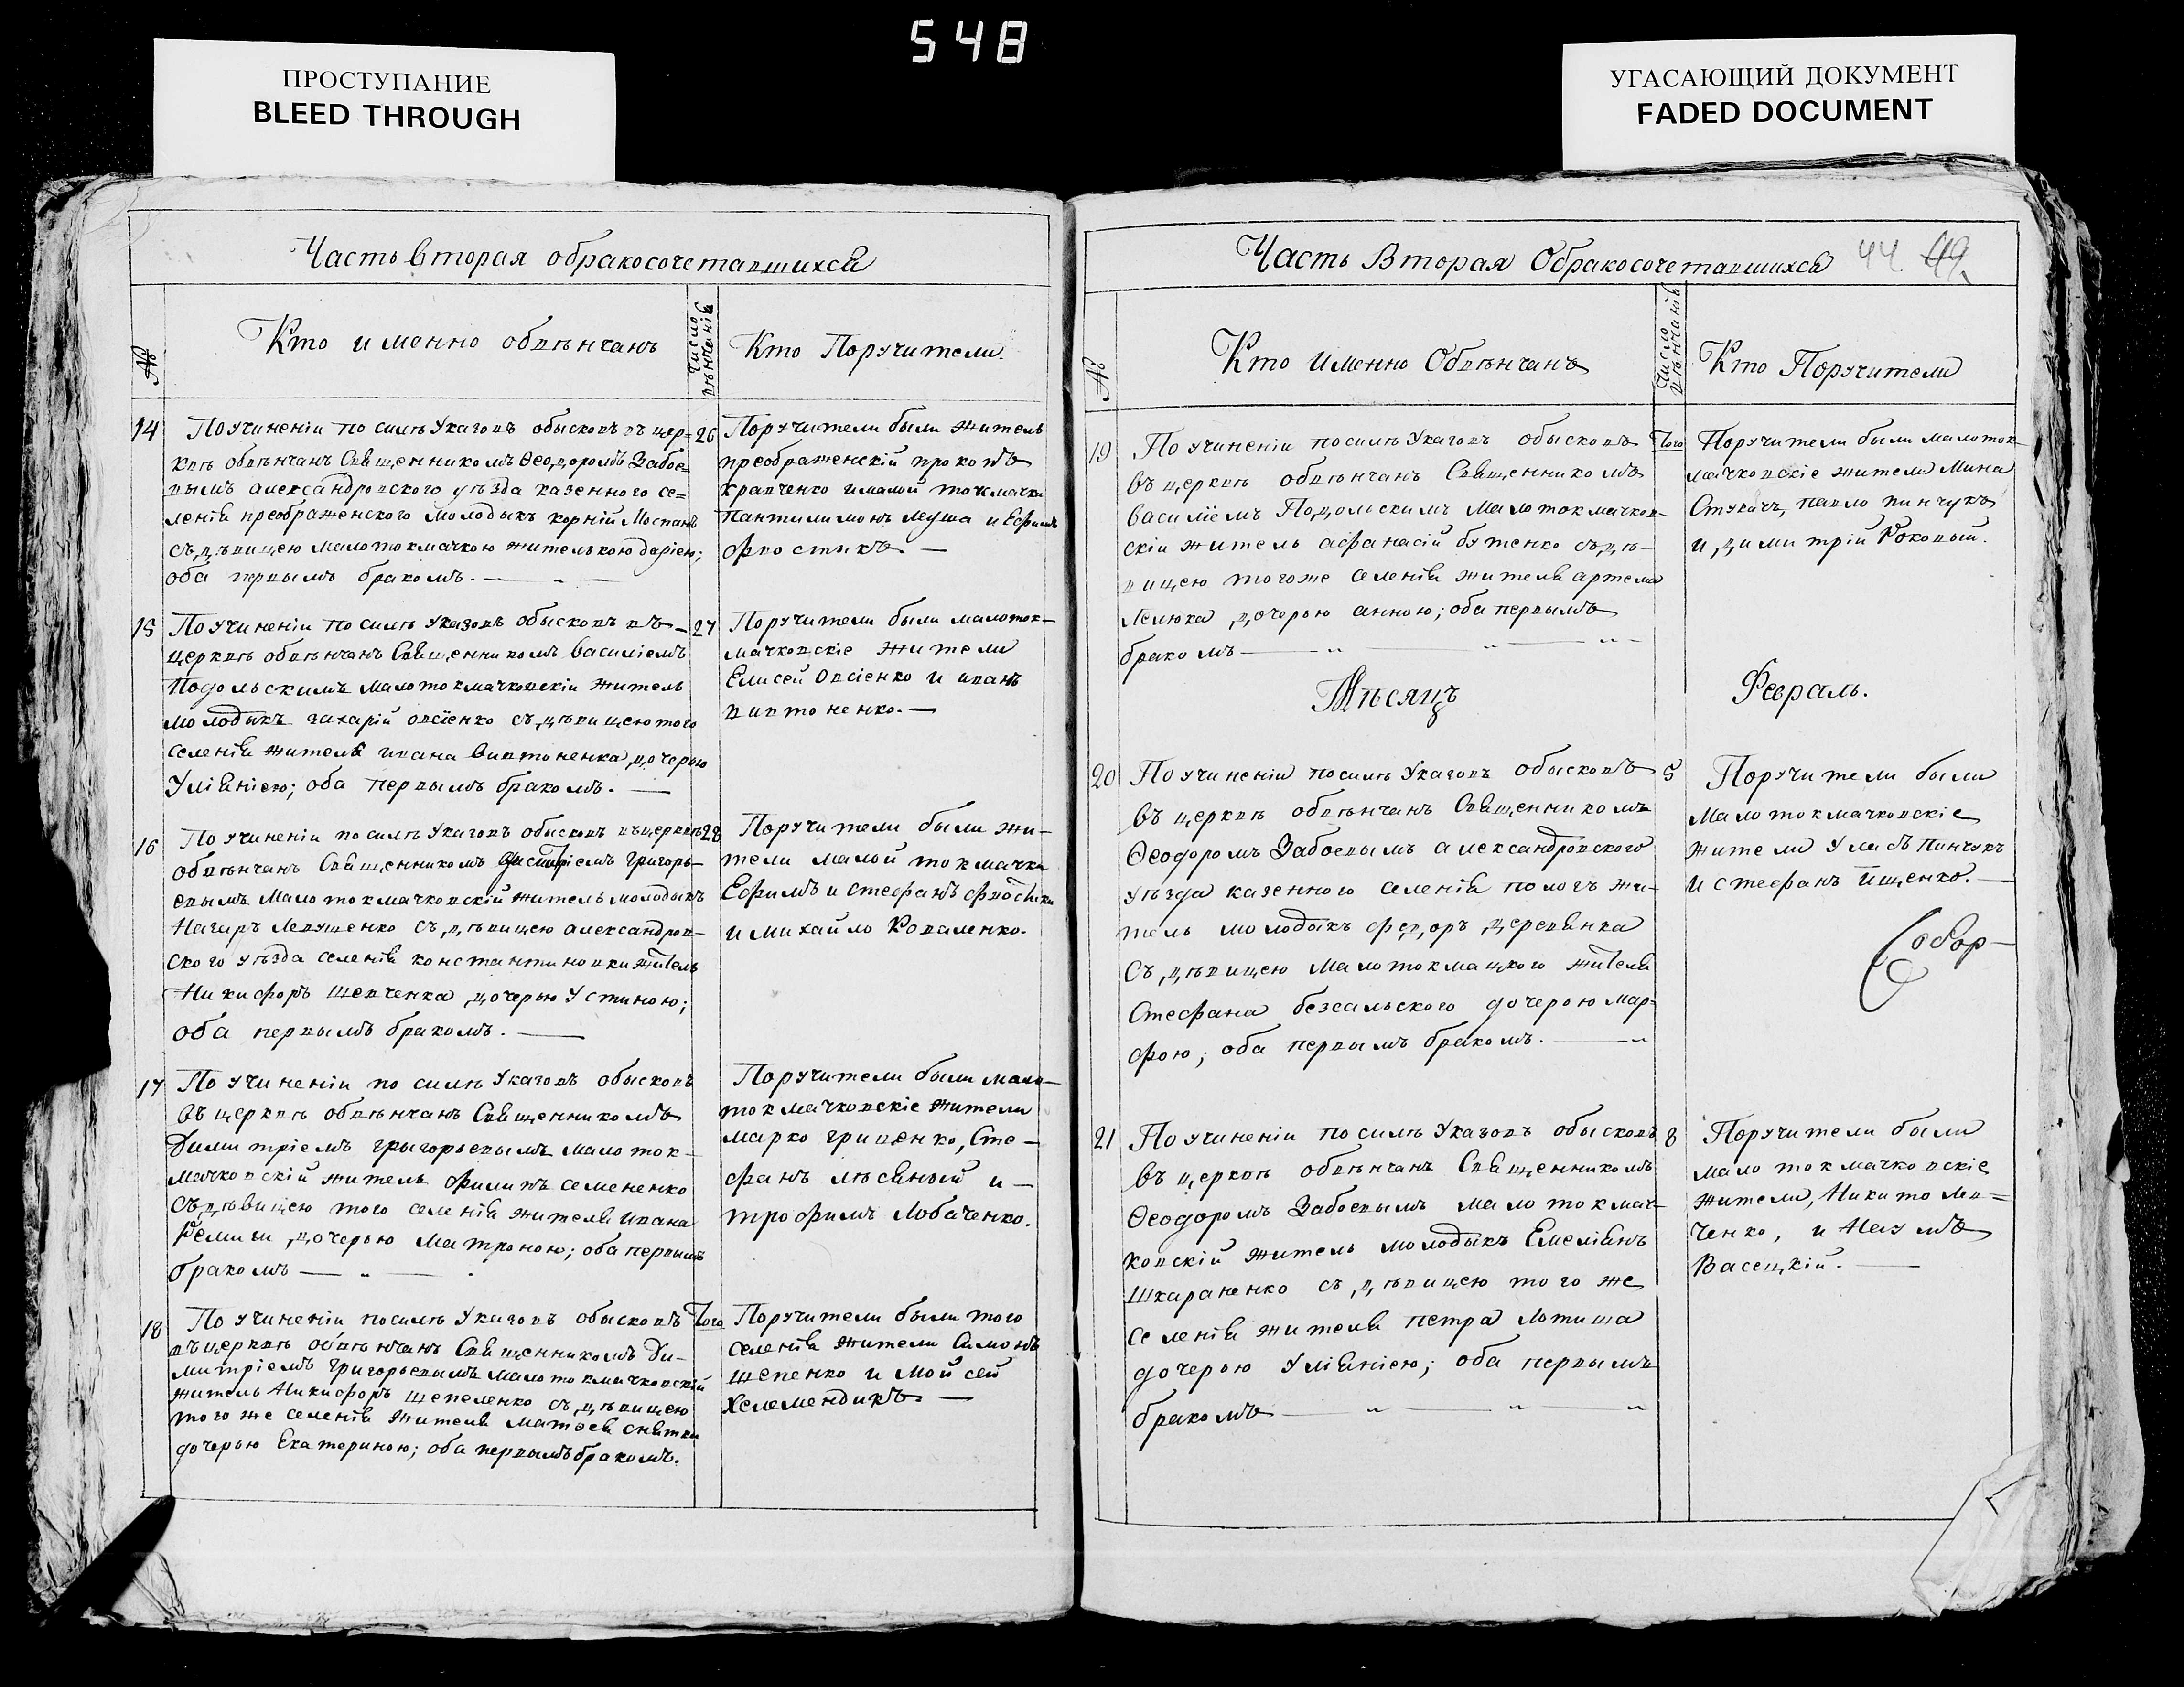 548
ПРОСТУПАНИЕ
BLEED THROUGH
УГАСАЮЩИЙ ДОКУМЕНТ
FADED DOCUMENT
Часть вторая обракосочетавшихся
№
Кто именно обвѣнчанъ
Число
вѣнчанія
Кто Поручители.
14
По учиненіи по силѣ Указовъ обысковъ въ цер=
квѣ обвѣнчанъ Священникомъ Ѳеодоромъ Забое=
вымъ александровского уѣзда казенного се=
ленія преображенского молодыкъ корній Моспанъ
съ дѣвицею малотокмачкою жителькою даріею;
оба первымъ бракомъ.
26
Поручители были житель
преображенскій прокопъ
кравченко и малой токмачки
Пантилимонъ леуша и Ефимъ
фростикъ
15
По учиненіи по силѣ указовъ обысковъ въ
церквѣ обвѣнчанъ Священникомъ василіемъ
Подольскимъ малотокмачковскіи житель
молодыкъ захарій овсіенко съ дѣвицею того
селенія жителя ивана Вивтоненка дочерью
Уліяніею; оба первымъ бракомъ.
27
Поручители были малоток-
мачковскіе жители
Елисей Овсіенко и иванъ
вивтоненко.
16
По учиненіи по силѣ указовъ обысковъ въ церквѣ
обвѣнчанъ Священникомъ Григорь-
евымъ Малотокмачковскій житель молодыкъ
Назаръ Левушенко съ дѣвицею александров-
ского уѣзда селенія константиновки жителя
Никифоръ Шевченка дочерью Устиною;
оба первымъ бракомъ.
28
Поручители были жи-
тели малой токмачки
Ефимъ и стефанъ фростики
и михайло Коваленко.
17
По учиненіи по силѣ Указовъ обысковъ
въ церквѣ обвѣнчанъ Священникомъ
Димитріемъ григорьевымъ малоток-
мачковскій житель филипъ семененко
съ дѣвицею того селенія жителя ивана
Ремиги дочерью матроною; оба первымъ
бракомъ
Поручители были мало-
токмачковскіе жители
марко гриценко, Сте-
фанъ лѣсяный и
трофимъ Лобаченко.
18
По учиненіи по силѣ Указовъ обысковъ
въ церквѣ обвѣнчанъ Священникомъ Ди-
митріемъ григорьевымъ малотокмачковскій
житель Никифоръ щепеленко съ дѣвицею
того же селенія жителя матвея снятки
дочерью Екатериною; оба первымъ бракомъ.
Того
Поручители были того
селенія жители Симонъ
щепенко и Мойсей
Хелемендикъ
Часть Вторая Обракосочетавшихся
44 49
№
Кто Именно Обвѣнчанъ
Число
вѣнчанія
Кто Поручители
19
По учиненіи по силѣ Указовъ обысковъ
въ церквѣ обвѣнчанъ Священникомъ
василіемъ Подольскимъ малотокмачков-
скіи житель афанасій бутенко съ дѣ-
вицею того же селенія жителя артема
Лелюка дочерью анною; оба первымъ
бракомъ
Того
Поручители были малоток-
мачковскіе жители Мина
Стукачъ, павло пинчукъ
и димитрій Роковый.
Мѣсяцъ
Февраль.
20
По учиненіи по силѣ Указовъ обысковъ
въ церквѣ обвѣнчанъ Священникомъ
Ѳеодоромъ Забоевымъ александровского
уѣзда казенного селенія пологъ жи-
тель молодыкъ федоръ деревянка
съ дѣвицею Малотокмацкого жителя
Стефана безсальского дочерью мар-
фою; оба первымъ бракомъ.
5
Поручители были
Малотокмачковскіе
жители Уласъ Пинчукъ
и стефанъ ищенко.
Собор-
21
По учиненіи по силѣ Указовъ обысковъ
въ церквѣ обвѣнчанъ Священникомъ
Ѳеодоромъ Забоевымъ малотокмач-
ковскій житель молодыкъ Емеліянъ
шкараненко съ дѣвицею того же
селенія жителя петра Лотиша
дочерью Уліяніею; оба первымъ
бракомъ
8
Поручители были
малотокмачковскіе
жители, Никито лев=
ченко, и Наумъ
Васецкій.